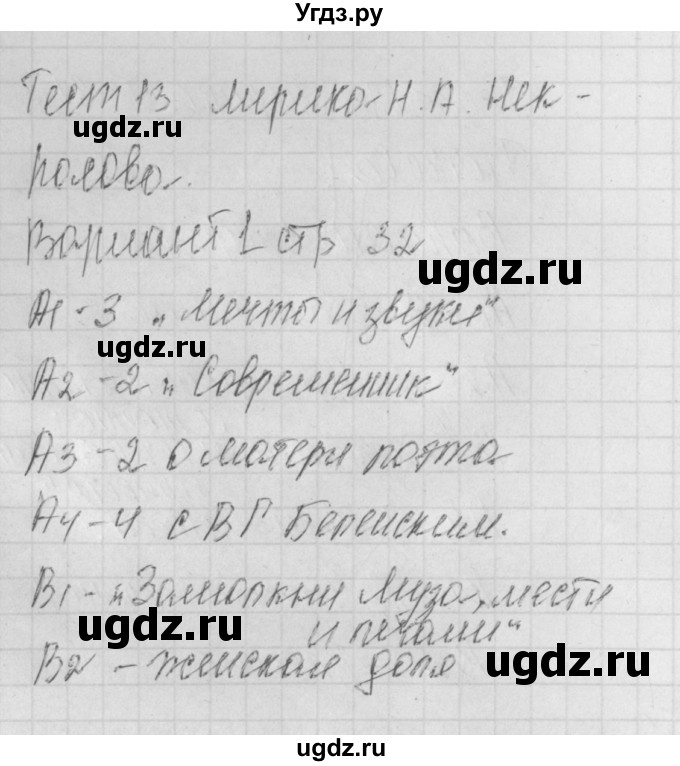 Угдз.ру
Тест 13 Лирика Н.А. Нек-
расова.
ugdz.ru
Вариант 1 стр 32
ugdz.ru
А1 - 3 „Мечты и звуки“
ugdz.ru
А2 - 2 „Современник“
А3 - 2 о матери поэта
ugdz.ru
А4 - 4 с ВГ Белинским.
В1 - „Замолкни Муза мести
и печали“
ugdz.ru
В2 - женская доля
ugdz.ru
ugdz.ru